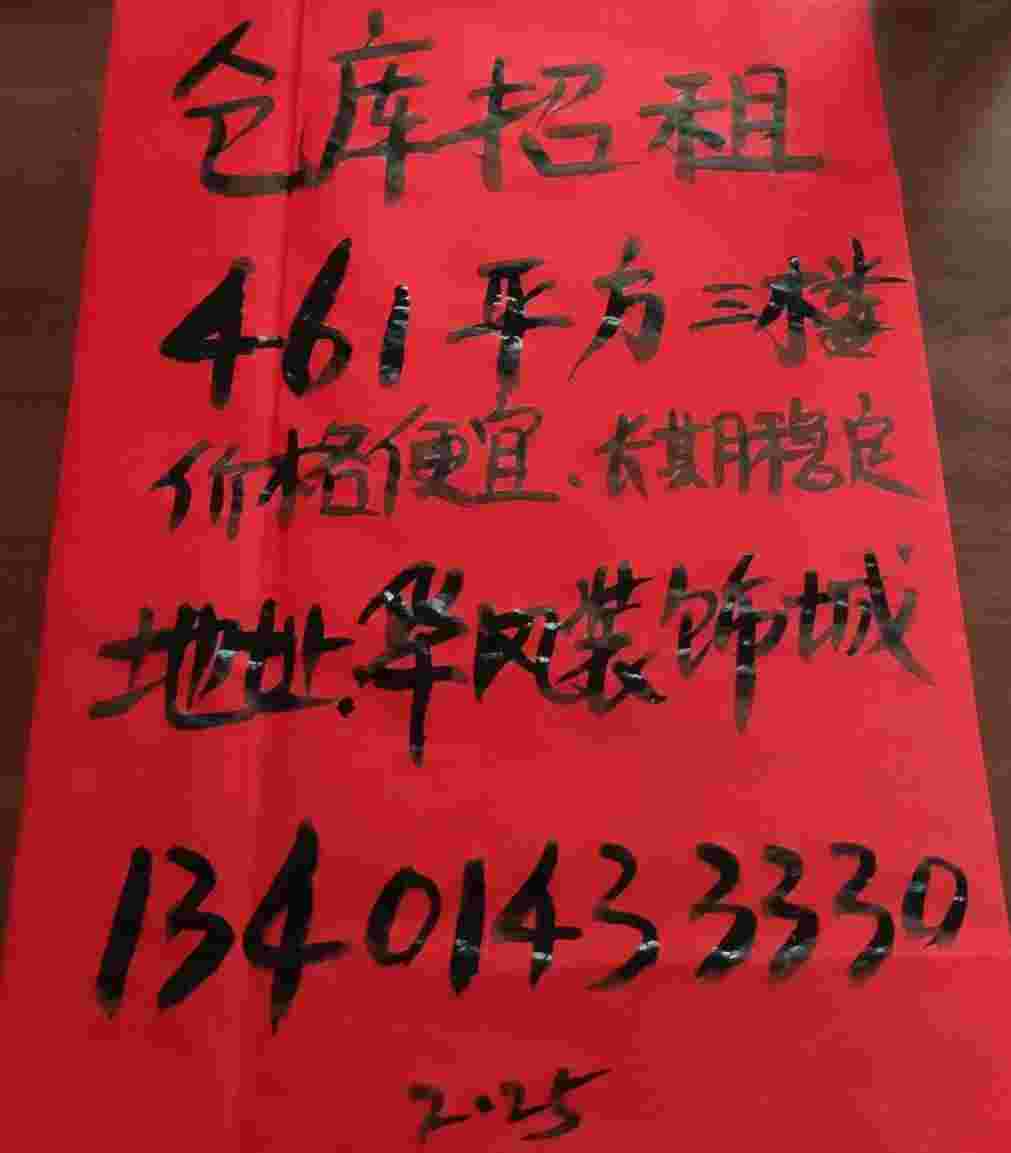 仓库招租
461平方三楼
价格便宜.长期稳定
地址.华风装饰城
13401433330
2.25